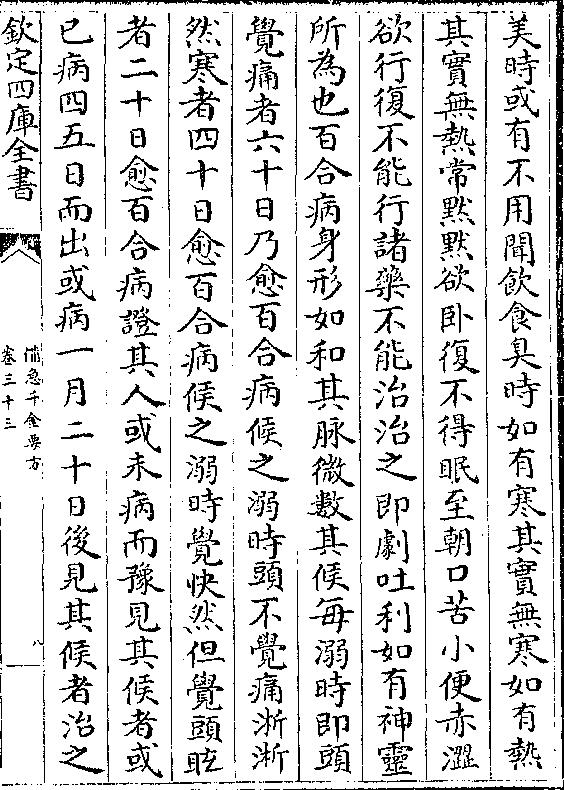 美時或有不用聞飲食臭時如有寒其實無寒如有熱
其實無熱常黙黙欲卧復不得眠至朝口苦小便赤澀
欲行復不能行諸藥不能治治之即劇吐利如有神靈
所為也百合病身形如和其脉微數其候每溺時即頭
覺痛者六十日乃愈百合病候之溺時頭不覺痛淅淅
然寒者四十日愈百合病候之溺時覺快然但覺頭眩
者二十日愈百合病證其人或未病而豫見其候者或
已病四五日而出或病一月二十日後見其候者治之
欽定四庫全書
備急千金要方
卷三十三
八